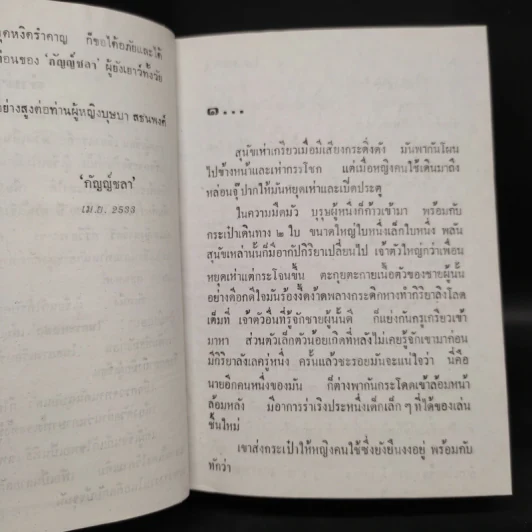 ุดหงิดรำคาญ ก็ขอได้อภัยและได้
ื่อนของ 'กัญญ์ชลา' ผู้ยังเยาว์ทั้งวัย
ย่างสูงต่อท่านผู้หญิงบุษบา สธนพงศ์
'กัญญ์ชลา'
เม.ย. 2533
๑...
สุนัขเห่าเกรียวเมื่อมีเสียงกระดิ่งดัง มันพากันโผน
ไปข้างหน้าและเห่ากรรโชก แต่เมื่อหญิงคนใช้เดินมาถึง
หล่อนจุ๊ปากให้มันหยุดเห่าและเปิดประตู
ในความมืดมัว บุรุษผู้หนึ่งก็ก้าวเข้ามา พร้อมกับ
กระเป๋าเดินทาง ๒ ใบ ขนาดใหญ่ใบหนึ่งเล็กใบหนึ่ง พลัน
สุนัขเหล่านั้นก็มีอากัปกิริยาเปลี่ยนไป เจ้าตัวใหญ่กว่าเพื่อน
หยุดเห่าแต่กระโจนขึ้น ตะกุยตะกายเนื้อตัวของชายผู้นั้น
อย่างดีอกดีใจมันร้องงี้ดง้าดพลางกระดิกหางทำกิริยาลิงโลด
เต็มที่ เจ้าตัวอื่นที่รู้จักชายผู้นั้นดี ก็แย่งกันกรูเกรียวเข้า
มาหา ส่วนตัวเล็กตัวน้อยเกิดทีหลังไม่เคยรู้จักเขามาก่อน
มีกิริยาลังเลครู่หนึ่ง ครั้นแล้วชะรอยมันจะแน่ใจว่า นี่คือ
นายอีกคนหนึ่งของมัน ก็ต่างพากันกระโดดเข้าล้อมหน้า
ล้อมหลัง มีอาการร่าเริงประหนึ่งเด็กเล็ก ๆ ที่ได้ของเล่น
ชิ้นใหม่
เขาส่งกระเป๋าให้หญิงคนใช้ซึ่งยังยืนงงอยู่ พร้อมกับ
ทักว่า